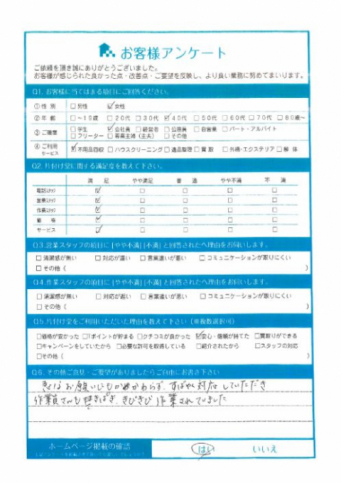 お客様アンケート
ご依頼を頂き誠にありがとうございました。
お客様が感じられた良かった点・改善点・ご要望を反映し、より良い業務に努めてまいります。
Q1. お客様に当てはまる項目にご回答ください。
①性 別 □男性 ☑女性
②年 齢 □~10歳 □20代 □30代 ☑40代 □50代 □60代 □70代 □80歳~
③ご職業 □学生 ☑会社員 □経営者 □公務員 □自営業 □パート・アルバイト
□フリーター □専業主婦(主夫) □その他
④ご利用サービス ☑不用品回収 □ハウスクリーニング □遺品整理 □買取 □外構・エクステリア □解体
Q2. 片付け堂に関する満足度を教えて下さい。
満 足 やや満足 普 通 やや不満 不 満
電話受付 ☑ □ □ □ □
営業受付 ☑ □ □ □ □
作業受付 ☑ □ □ □ □
☑ □ □ □ □
サービス ☑ □ □ □ □
Q3. 営業スタッフの項目に「やや不満」「不満」と回答された方へ理由をお伺いします。
□清潔感が無い □対応が遅い □言葉遣いが悪い □コミュニケーションが取りにくい
□その他( )
Q4. 作業スタッフの項目に「やや不満」「不満」と回答された方へ理由をお伺いします。
□清潔感が無い □対応が遅い □言葉遣いが悪い □コミュニケーションが取りにくい
□その他( )
Q5. 片付け堂をご利用いただいた理由を教えて下さい(複数選択可)
□価格が安かった □ポイントが貯まる □クチコミが良かった ☑安心・信頼が持てた □買取りができる
□キャンペーンをしていたから □必要な許可を取得している □紹介されたから □スタッフの対応
□その他( )
Q6. その他ご意見・ご要望がありましたらご自由にお書き下さい
急なお願いにもかかわらず、すばやい対応していただき
作業員さんも てきぱき きびきび 作業されていました
ホームページ掲載の確認 はい いいえ